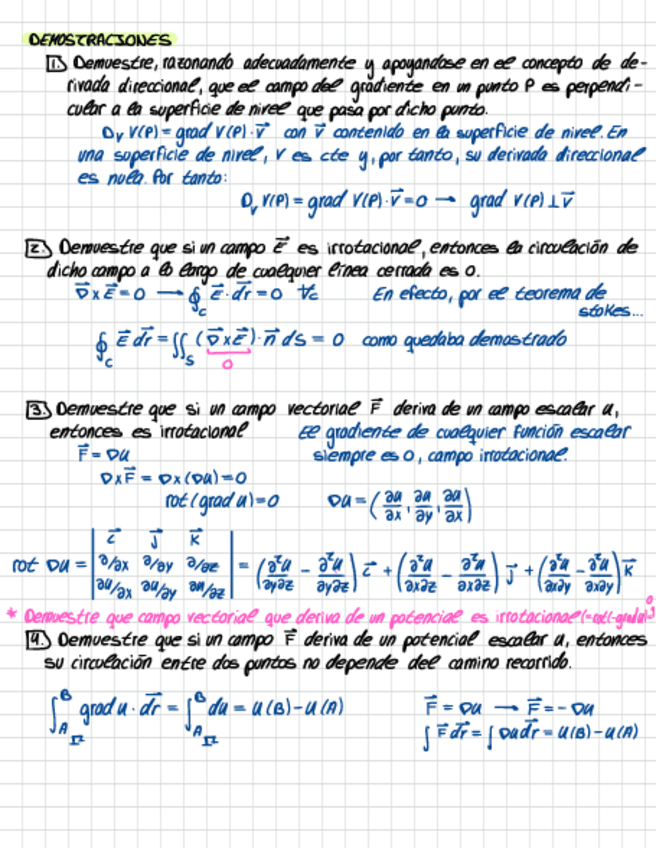 DEMOSTRACIONES
1. Demuestre, razonando adecuadamente y apoyandose en el concepto de de-
rivada direccional, que el campo del gradiente en un punto P es perpendi-
cular a la superficie de nivel que pasa por dicho punto.
Dᵥ V(P) = grad V(P)·v⃗ con v⃗ contenido en la superficie de nivel. En
una superficie de nivel, V es cte y, por tanto, su derivada direccional
es nula. Por tanto:
Dᵥ V(P) = grad V(P)·v⃗ = 0 → grad V(P) ⊥ v⃗
2. Demuestre que si un campo E⃗ es irrotacional, entonces la circulación de
dicho campo a lo largo de cualquier línea cerrada es 0.
∇⃗ x E⃗ = 0 → ∮_C E⃗·dr⃗ = 0 ∀c En efecto, por el teorema de
stokes...
∮_C E⃗ dr⃗ = ∬_S (∇⃗ x E⃗)·n⃗ ds = 0 como quedaba demostrado
0
3. Demuestre que si un campo vectorial F⃗ deriva de un campo escalar u,
entonces es irrotacional El gradiente de cualquier función escalar
F⃗ = ∇u siempre es 0, campo irrotacional.
∇xF⃗ = ∇x(∇u) = 0
rot(grad u) = 0 ∇u = (∂u/∂x, ∂u/∂y, ∂u/∂x)
rot ∇u = | i⃗ j⃗ k⃗ ; ∂/∂x ∂/∂y ∂/∂z ; ∂u/∂x ∂u/∂y ∂u/∂z | = (∂²u/∂y∂z - ∂²u/∂y∂z) i⃗ + (∂²u/∂x∂z - ∂²u/∂x∂z) j⃗ + (∂²u/∂x∂y - ∂²u/∂x∂y) k⃗
* Demuestre que campo vectorial que deriva de un potencial es irrotacional (=rot(-gradu))
4. Demuestre que si un campo F⃗ deriva de un potencial escalar u, entonces
su circulación entre dos puntos no depende del camino recorrido.
∫_A^B grad u · dr⃗ = ∫_A^B du = u(B) - u(A) F⃗ = ∇u → F⃗ = -∇u
∫ F⃗ dr⃗ = ∫ ∇u dr⃗ = u(B) - u(A)